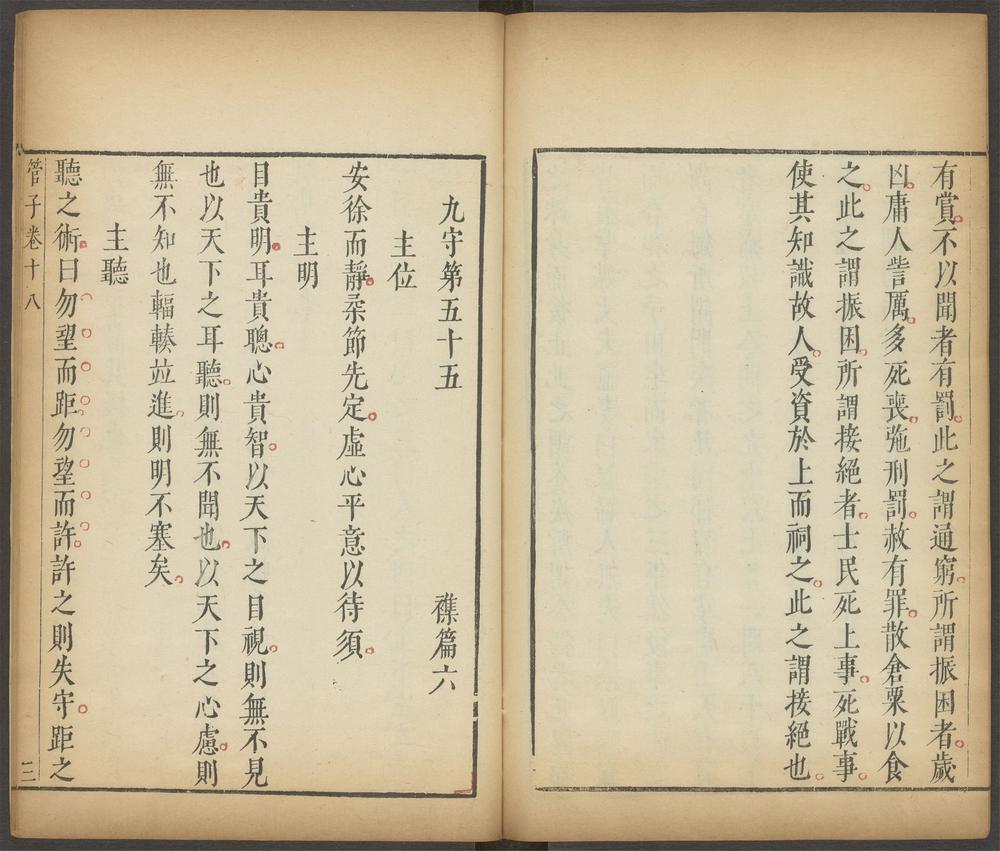 有賞不以聞者有罰此之謂通窮所謂振困者歲
凶庸人訾厲多死喪弛刑罰赦有罪散倉粟以食
之此之謂振困所謂接絕者士民死上事死戰事
使其知識故人受資於上而祠之此之謂接絕也
九守第五十五 襍篇六
主位
安徐而靜柔節先定虛心平意以待須
主明
目貴明耳貴聰心貴智以天下之目視則無不見
也以天下之耳聽則無不聞也以天下之心慮則
無不知也輻輳竝進則明不塞矣
主聽
聽之術曰勿望而距勿望而許許之則失守距之
管子卷十八 三